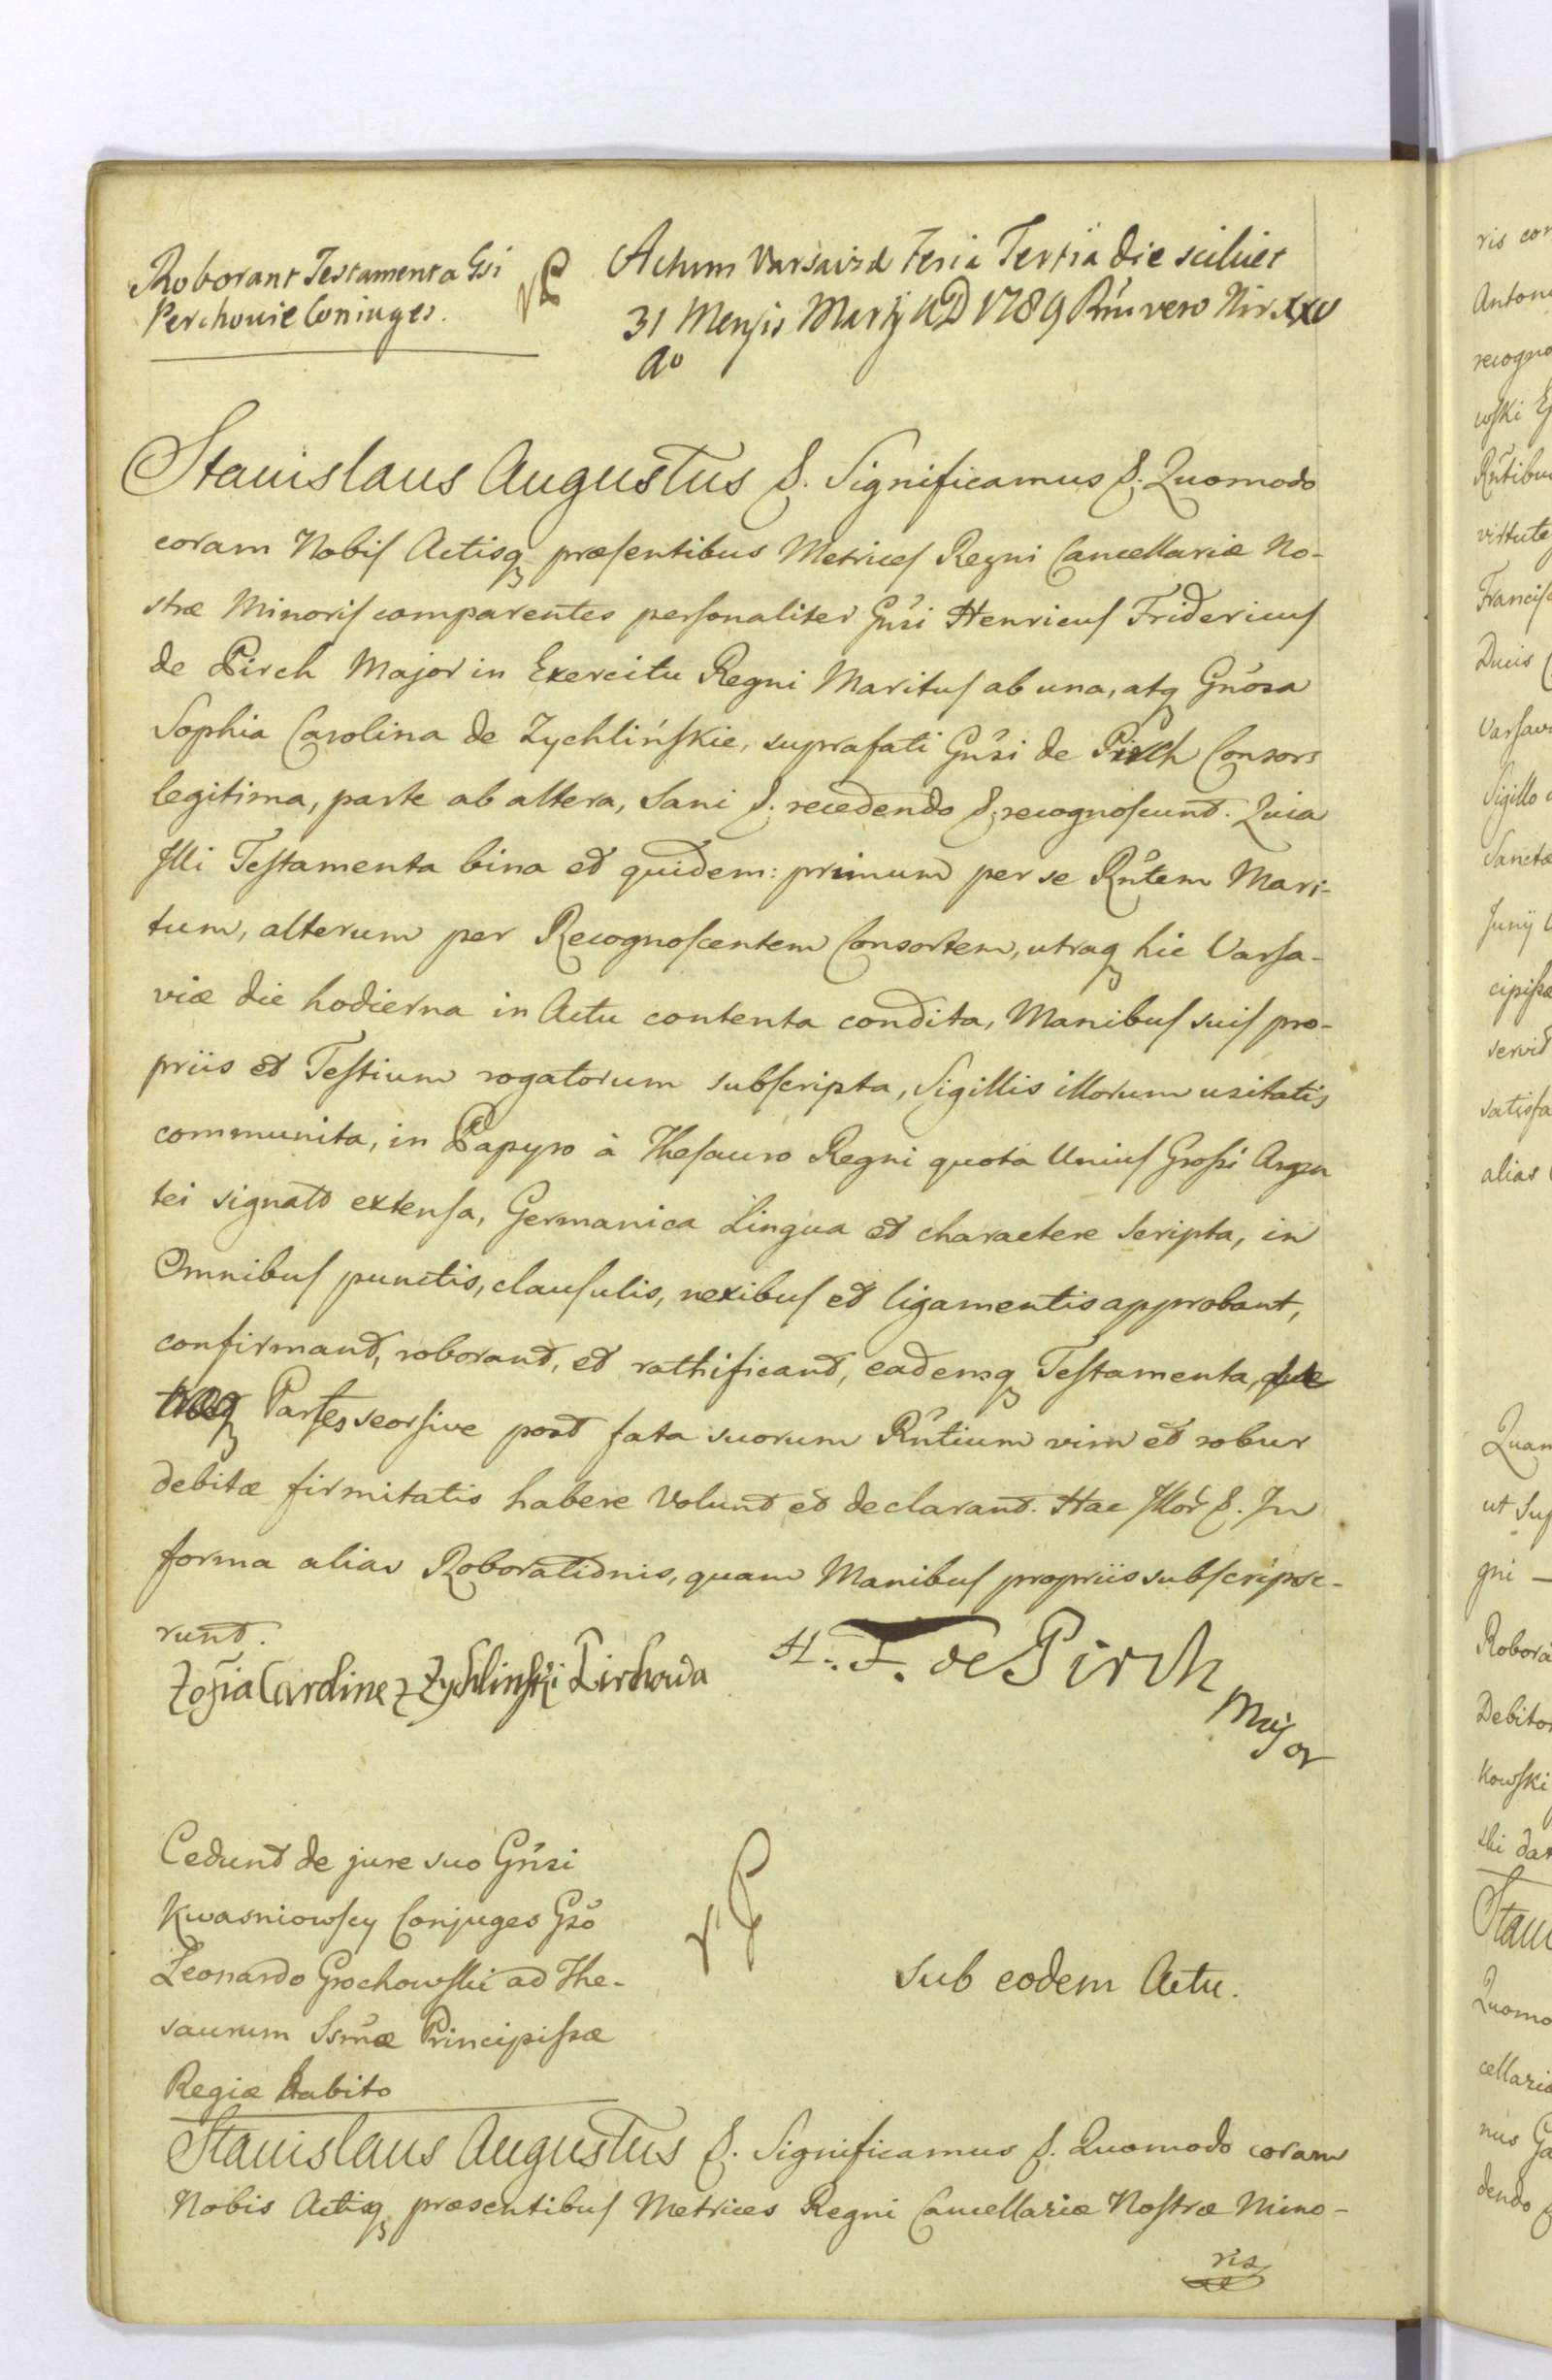 Roborant Testamenta Gsi
Perchowie Coniuges.
Actum Varsaviæ Feria Tertia die scilicet
31 Mensis Martij AD 1789 Rni vero Nri XXV
Ao
Stanislaus Augustus &. Significamus &. Quomodo
coram Nobis Actisq præsentibus Metrices Regni Cancellariæ No-
stræ Minoris comparentes personaliter Gnsi Henricus Fridericus
de Pirch Major in Exercitu Regni Maritus ab una, atq Gnosa
Sophia Carolina de Zychlińskie, suprafati Gnsi de Pirch Consors
legitima, parte ab altera, Sani &. recedendo &. recognoscunt. Quia
Illi Testamenta bina et quidem: primum per se Rntem Mari-
tum, alterum per Recognoscentem Consortem, utraq hic Varsa-
viæ die hodierna in Actu contenta condita, Manibus suis pro-
priis et Testium rogatorum subscripta, Sigillis illorum usitatis
communita, in Papyro à Thesauro Regni quota Unius Grossi Argen
tei signato extensa, Germanica Lingua et charactere scripta, in
Omnibus punctis, clausulis, nexibus et ligamentis approbant,
confirmant, roborant, et rathificant, eademq Testamenta,
Partes seorsive post fata suorum Rntium vim et robur
debitæ firmitatis habere volunt et declarant. Hac Illor &. In
forma alias Roborationis, quam Manibus propriis subscripse-
runt.
Zofia Caroline z Zychlinski Pirchowa
H. F. de Pirch
Major
Cedunt de jure suo Gnsi
Kwasniowscy Conjuges Gso
Leonardo Grochowski ad The-
saurum Ssmæ Principissæ
Regiæ habito
Sub eodem Actu.
Stanislaus Augustus &. Significamus &. Quomodo coram
Nobis Actisq præsentibus Metrices Regni Cancellariæ Nostræ Mino-
ris
ris con
Anton
recogno
wski
Rntibus
virtute
Francisc
Ducis
Varsav
Sigillo
Sanctæ
Junij
cipissæ
servit
satisfa
alias
Quam
ut Sup
gni —
Robora
Debitor
kowski
ski dat
Stani
Quomo
cellariæ
nus
dendo